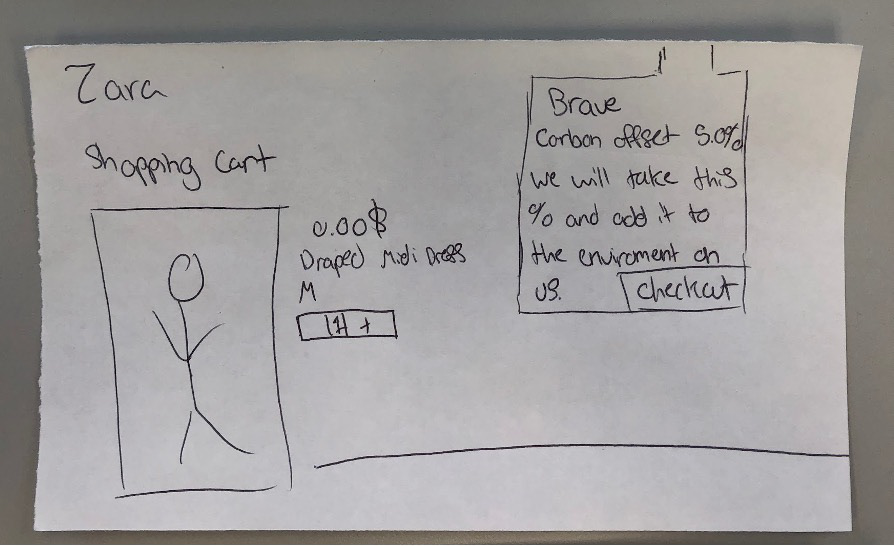 Zara
Shopping Cart
0.00$
Draped Midi Dress
M
Brave
Carbon offset 5.0%
we will take this
% and add it to
the enviroment on
us.
checkout